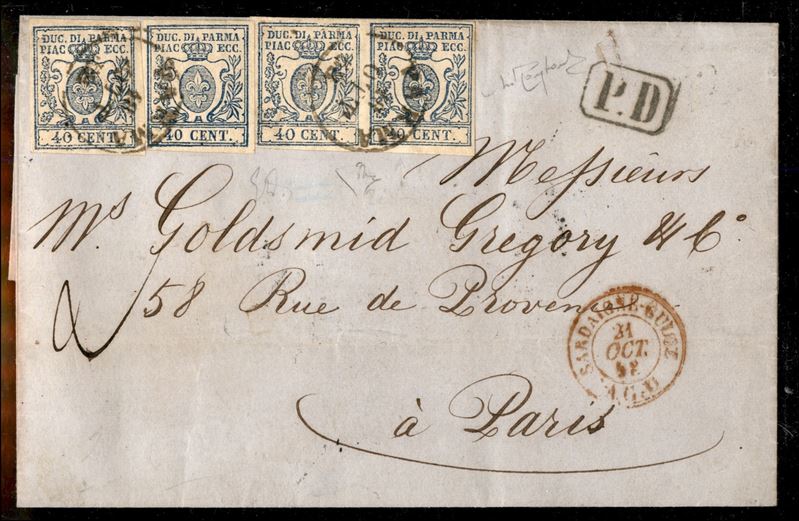 DUC. DI PARMA
PIAC ECC.
40 CENT.
DUC. DI PARMA
PIAC ECC.
40 CENT.
DUC. DI PARMA
PIAC ECC.
40 CENT.
DUC. DI PARMA
PIAC ECC.
40 CENT.
PARMA
P.D
Messieurs
Ms. Goldsmid Gregory & Co
58 Rue de Provence
SARDAIGNE
21
OCT.
58
à Paris